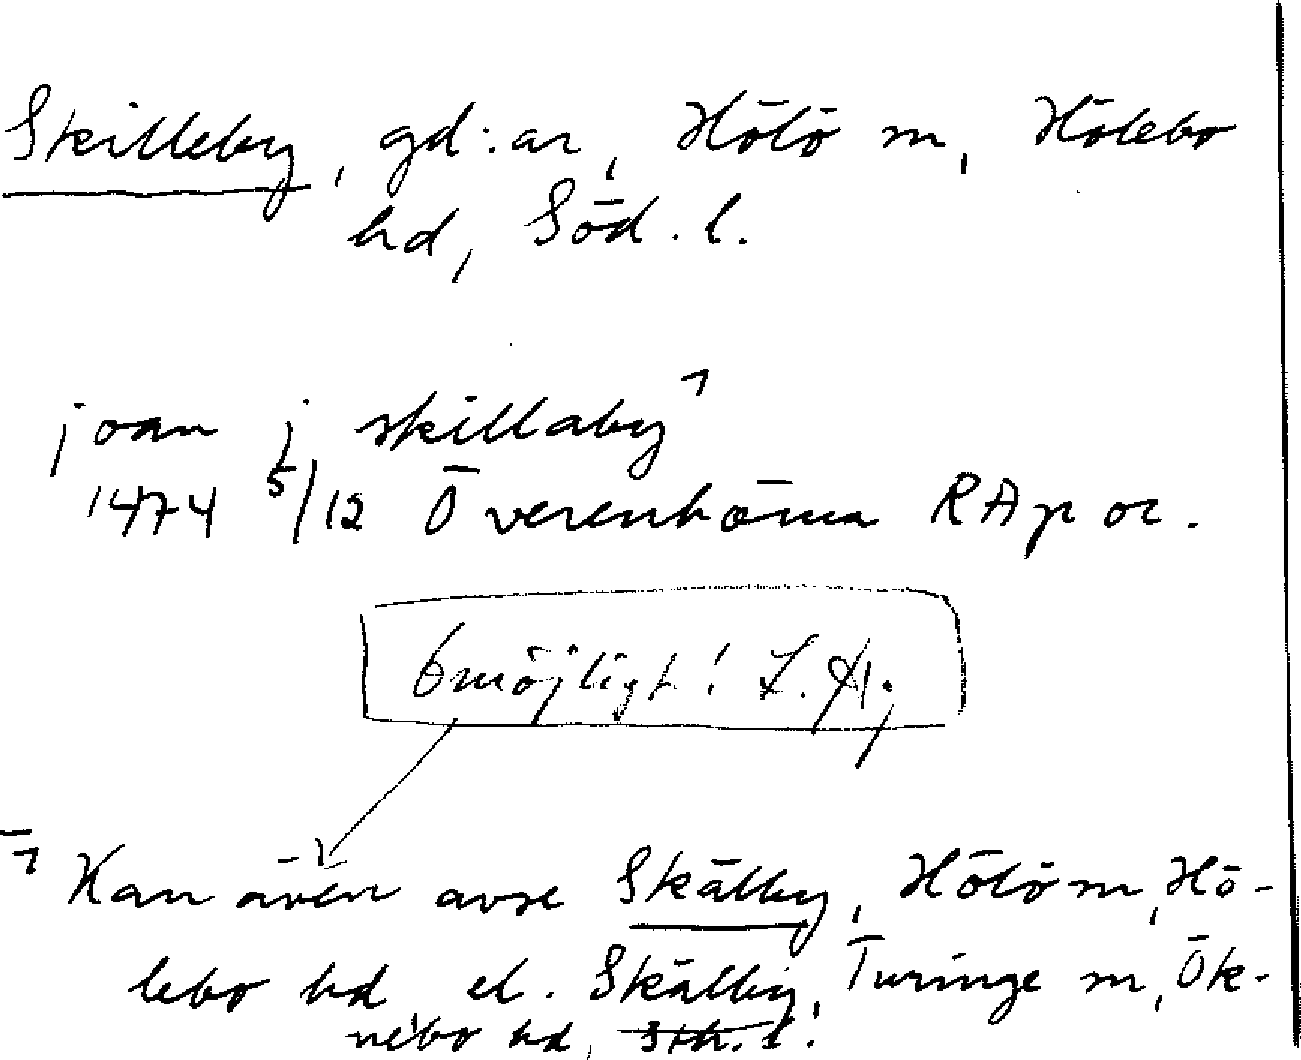 Skilleby, gd:ar, Hölö sn, Hölebo
hd, Söd. l.
joan j skillaby 1
1474 5/12 Överenhörna RAp or.
Omöjligt! L.H.
1 Kan även avse Skälby, Hölö sn, Hö-
lebo hd el. Skälby, Turinge sn, Ök-
nebo hd, Sth. l.